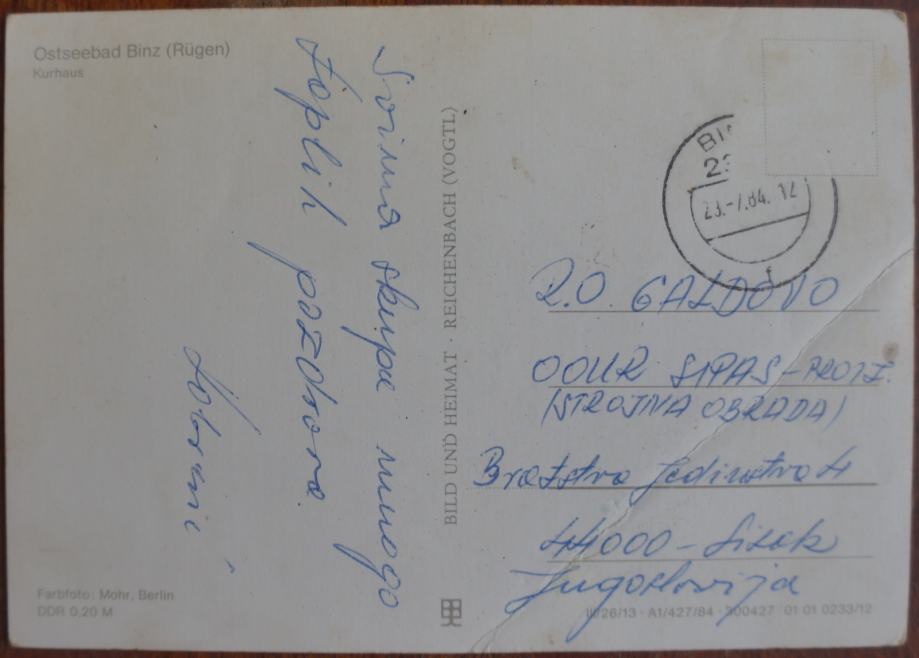 Ostseebad Binz (Rügen)
Kurhaus
Svima skupa mnogo
toplih pozdrava
BILD UND HEIMAT · REICHENBACH (VOGTL)
23.-7.84. 12
R.O. GALDOVO
OOUR SIPAS-PROIZ.
(STROJNA OBRADA)
Bratstva Jedinstva 4
44000 - Sisak
Jugoslavija
Farbfoto: Mohr, Berlin
DDR 0,20 M
III/26/13 · A1/427/84 · 300427 01 01 0233/12